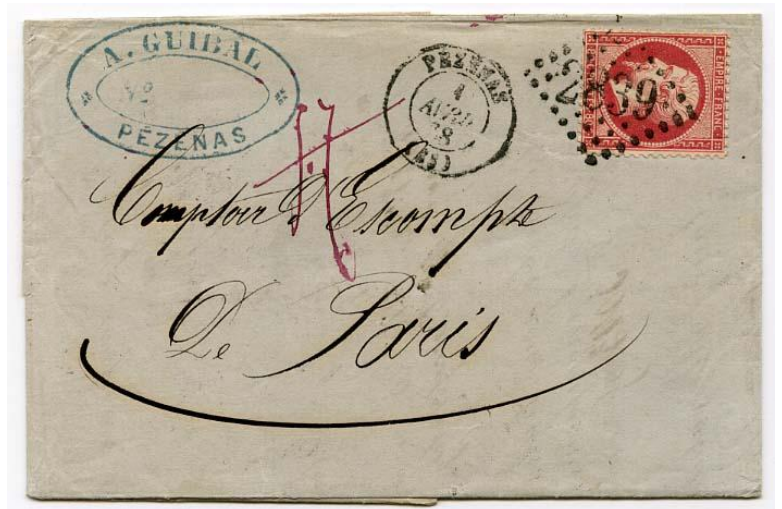 A. GUIBAL
PÉZENAS
PEZENAS
1
AVRIL
68
EMPIRE FRANC
39
Comptoir d'Escompte
De Paris